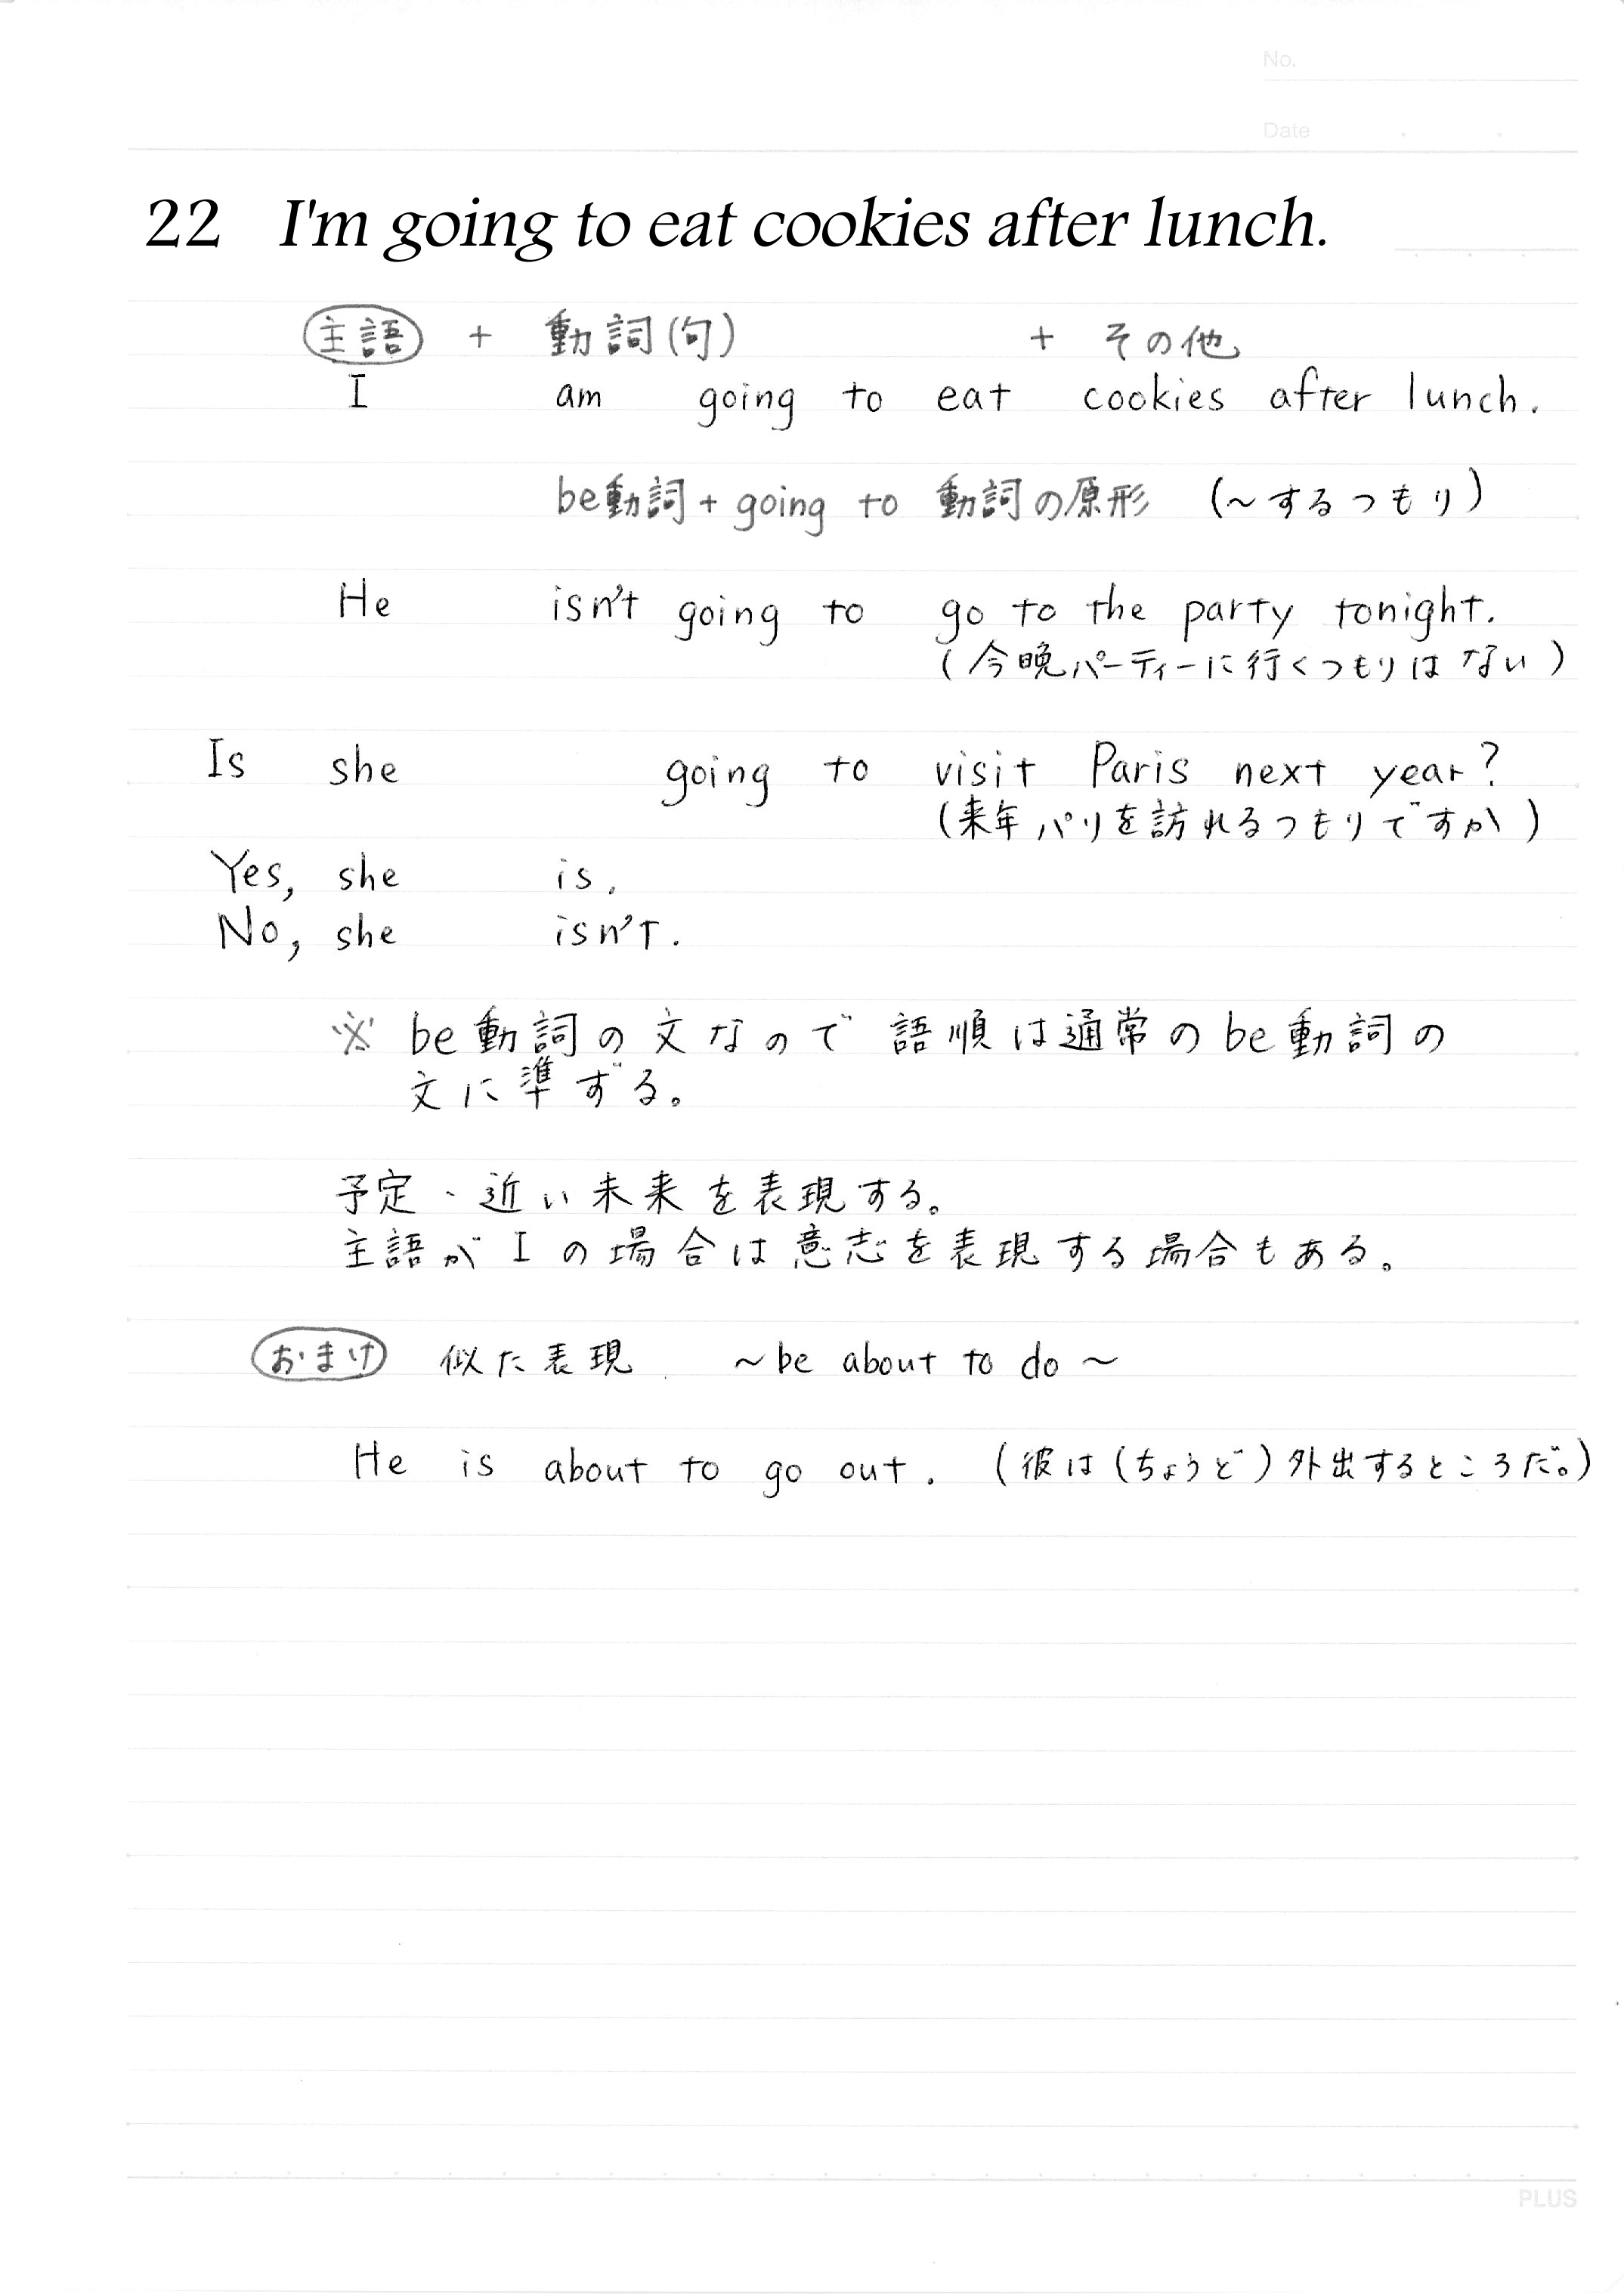 No.
Date
22 I'm going to eat cookies after lunch.
主語 + 動詞(句) + その他
I am going to eat cookies after lunch.
be動詞 + going to 動詞の原形 (～するつもり)
He isn't going to go to the party tonight.
(今晩パーティーに行くつもりはない)
Is she going to visit Paris next year?
(来年パリを訪れるつもりですか)
Yes, she is.
No, she isn't.
※ be動詞の文なので語順は通常のbe動詞の
文に準ずる。
予定、近い未来を表現する。
主語が I の場合は意志を表現する場合もある。
おまけ 似た表現 ～be about to do～
He is about to go out. (彼は(ちょうど)外出するところだ。)
PLUS